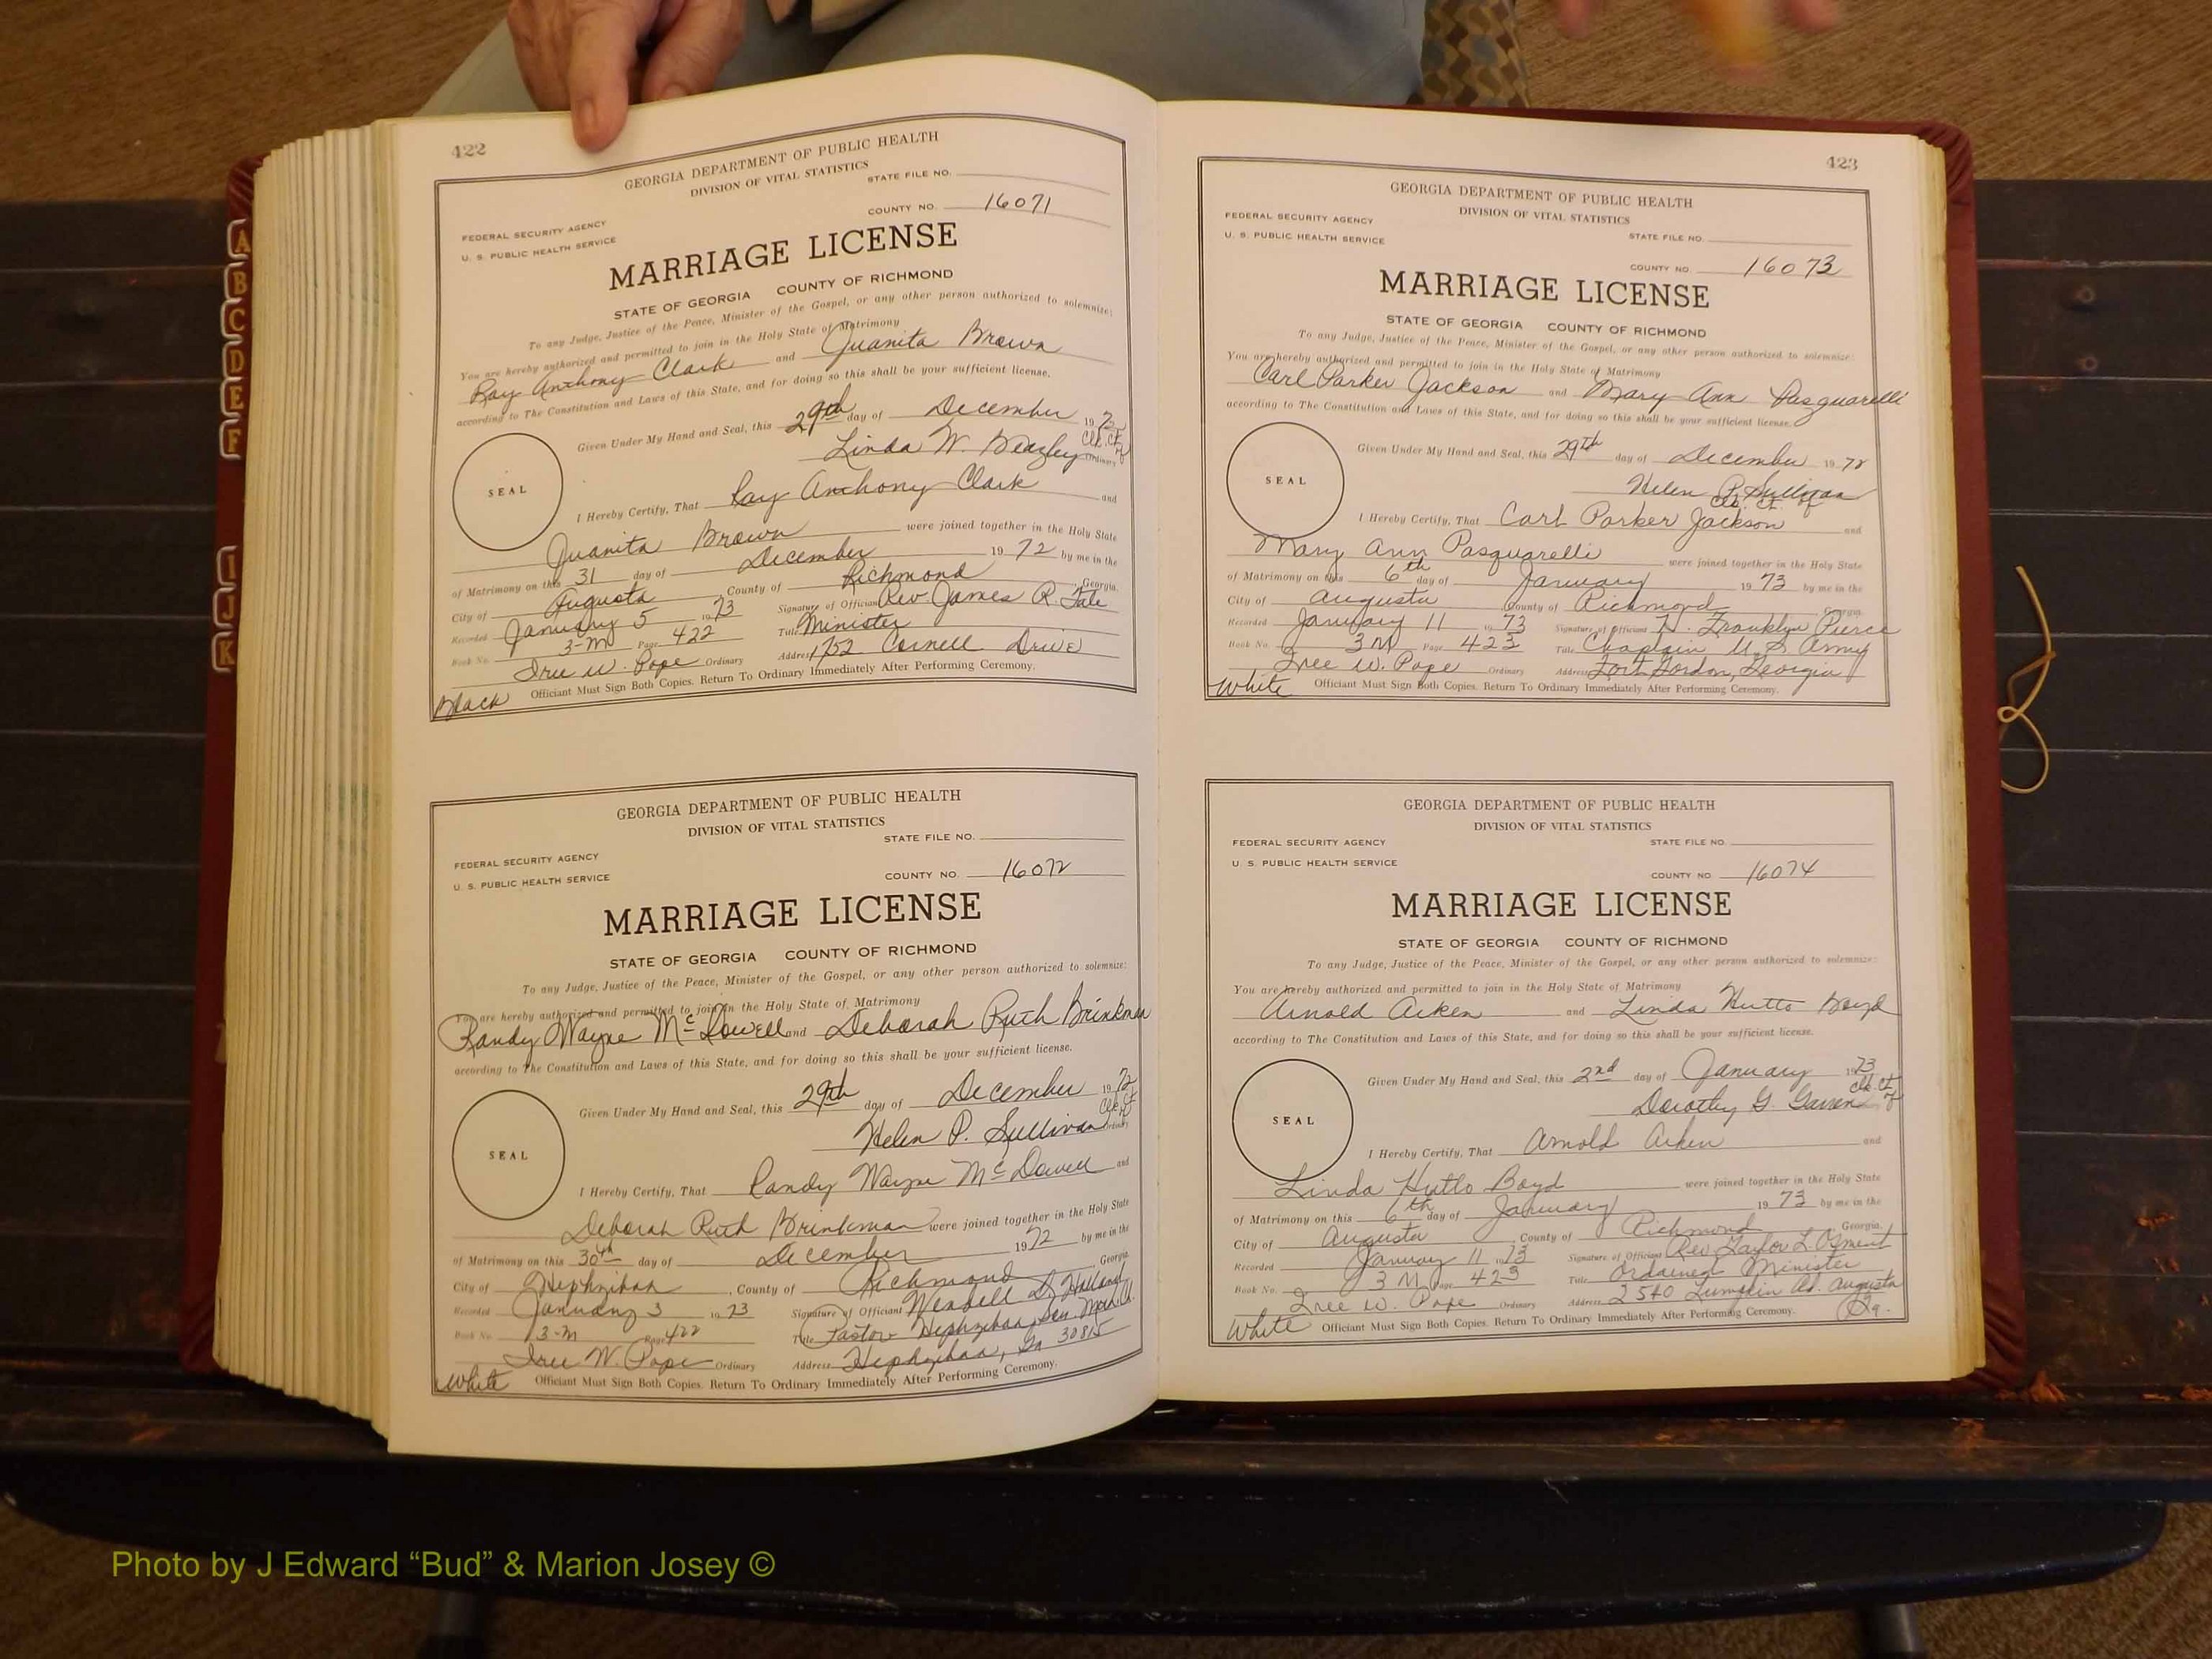 A
B
C
D
E
F
I
J
K
422
GEORGIA DEPARTMENT OF PUBLIC HEALTH
DIVISION OF VITAL STATISTICS
STATE FILE NO.
COUNTY NO. 16071
FEDERAL SECURITY AGENCY
U. S. PUBLIC HEALTH SERVICE
MARRIAGE LICENSE
STATE OF GEORGIA COUNTY OF RICHMOND
To any Judge, Justice of the Peace, Minister of the Gospel, or any other person authorized to solemnize:
You are hereby authorized and permitted to join in the Holy State of Matrimony
Ray Anthony Clark and Juanita Brown
according to The Constitution and Laws of this State, and for doing so this shall be your sufficient license.
Given Under My Hand and Seal, this 29th day of December 1972
Linda W. Beazley Clk. Ct. of Ordinary
SEAL
I Hereby Certify, That Ray Anthony Clark and
Juanita Brown were joined together in the Holy State
of Matrimony on this 31 day of December 1972 by me in the
City of Augusta, County of Richmond, Georgia.
Recorded January 5 1973 Signature of Official Rev James R. Tate
Book No. 3-M Page 422 Title Minister
Iree W. Pope Ordinary Address 1752 Cornell Drive
Officiant Must Sign Both Copies. Return To Ordinary Immediately After Performing Ceremony.
Black
GEORGIA DEPARTMENT OF PUBLIC HEALTH
DIVISION OF VITAL STATISTICS
STATE FILE NO.
FEDERAL SECURITY AGENCY
U. S. PUBLIC HEALTH SERVICE
COUNTY NO. 16072
MARRIAGE LICENSE
STATE OF GEORGIA COUNTY OF RICHMOND
To any Judge, Justice of the Peace, Minister of the Gospel, or any other person authorized to solemnize:
You are hereby authorized and permitted to join in the Holy State of Matrimony
Randy Wayne McDowell and Deborah Ruth Brinkman
according to The Constitution and Laws of this State, and for doing so this shall be your sufficient license.
Given Under My Hand and Seal, this 29th day of December 1972
Helen P. Sullivan Clk. Ct. of Ordinary
SEAL
I Hereby Certify, That Randy Wayne McDowell and
Deborah Ruth Brinkman were joined together in the Holy State
of Matrimony on this 30th day of December 1972 by me in the
City of Hephzibah, County of Richmond Georgia.
Recorded January 3 1973 Signature of Official Wendell
Book No. 3-M Page 422 Title Pastor Hephzibah
Iree W. Pope Ordinary Address Hephzibah, Ga 30815
White Officiant Must Sign Both Copies. Return To Ordinary Immediately After Performing Ceremony.
423
GEORGIA DEPARTMENT OF PUBLIC HEALTH
DIVISION OF VITAL STATISTICS
FEDERAL SECURITY AGENCY
U. S. PUBLIC HEALTH SERVICE
STATE FILE NO.
COUNTY NO. 16073
MARRIAGE LICENSE
STATE OF GEORGIA COUNTY OF RICHMOND
To any Judge, Justice of the Peace, Minister of the Gospel, or any other person authorized to solemnize:
You are hereby authorized and permitted to join in the Holy State of Matrimony
Carl Parker Jackson and Mary Ann Pasquarelli
according to The Constitution and Laws of this State, and for doing so this shall be your sufficient license.
Given Under My Hand and Seal, this 29th day of December 1972
Helen P. Sullivan
Clk. Ct. of
SEAL
I Hereby Certify, That Carl Parker Jackson and
Mary Ann Pasquarelli were joined together in the Holy State
of Matrimony on this 6th day of January 1973 by me in the
City of Augusta, County of Richmond Georgia.
Recorded January 11 1973 Signature of Official Franklyn Pierce
Book No. 3 M Page 423 Title Chaplain U.S. Army
Iree W. Pope Ordinary Address Fort Gordon, Georgia
White Officiant Must Sign Both Copies. Return To Ordinary Immediately After Performing Ceremony.
GEORGIA DEPARTMENT OF PUBLIC HEALTH
DIVISION OF VITAL STATISTICS
FEDERAL SECURITY AGENCY STATE FILE NO.
U. S. PUBLIC HEALTH SERVICE
COUNTY NO 16074
MARRIAGE LICENSE
STATE OF GEORGIA COUNTY OF RICHMOND
To any Judge, Justice of the Peace, Minister of the Gospel, or any other person authorized to solemnize:
You are hereby authorized and permitted to join in the Holy State of Matrimony
Arnold Aiken and Linda Hutto Boyd
according to The Constitution and Laws of this State, and for doing so this shall be your sufficient license.
Given Under My Hand and Seal, this 2nd day of January 1973
Dorothy G. Garren Clk. Ct. of
SEAL
I Hereby Certify, That Arnold Aiken and
Linda Hutto Boyd were joined together in the Holy State
of Matrimony on this 6th day of January 1973 by me in the
City of Augusta, County of Richmond, Georgia.
Recorded January 11 1973 Signature of Official Rev Taylor L Ozment
Book No. 3 M Page 423 Title Ordained Minister
Iree W. Pope Ordinary Address 2540 Lumpkin Rd. Augusta
White Officiant Must Sign Both Copies. Return To Ordinary Immediately After Performing Ceremony. Ga.
Photo by J Edward “Bud” & Marion Josey ©